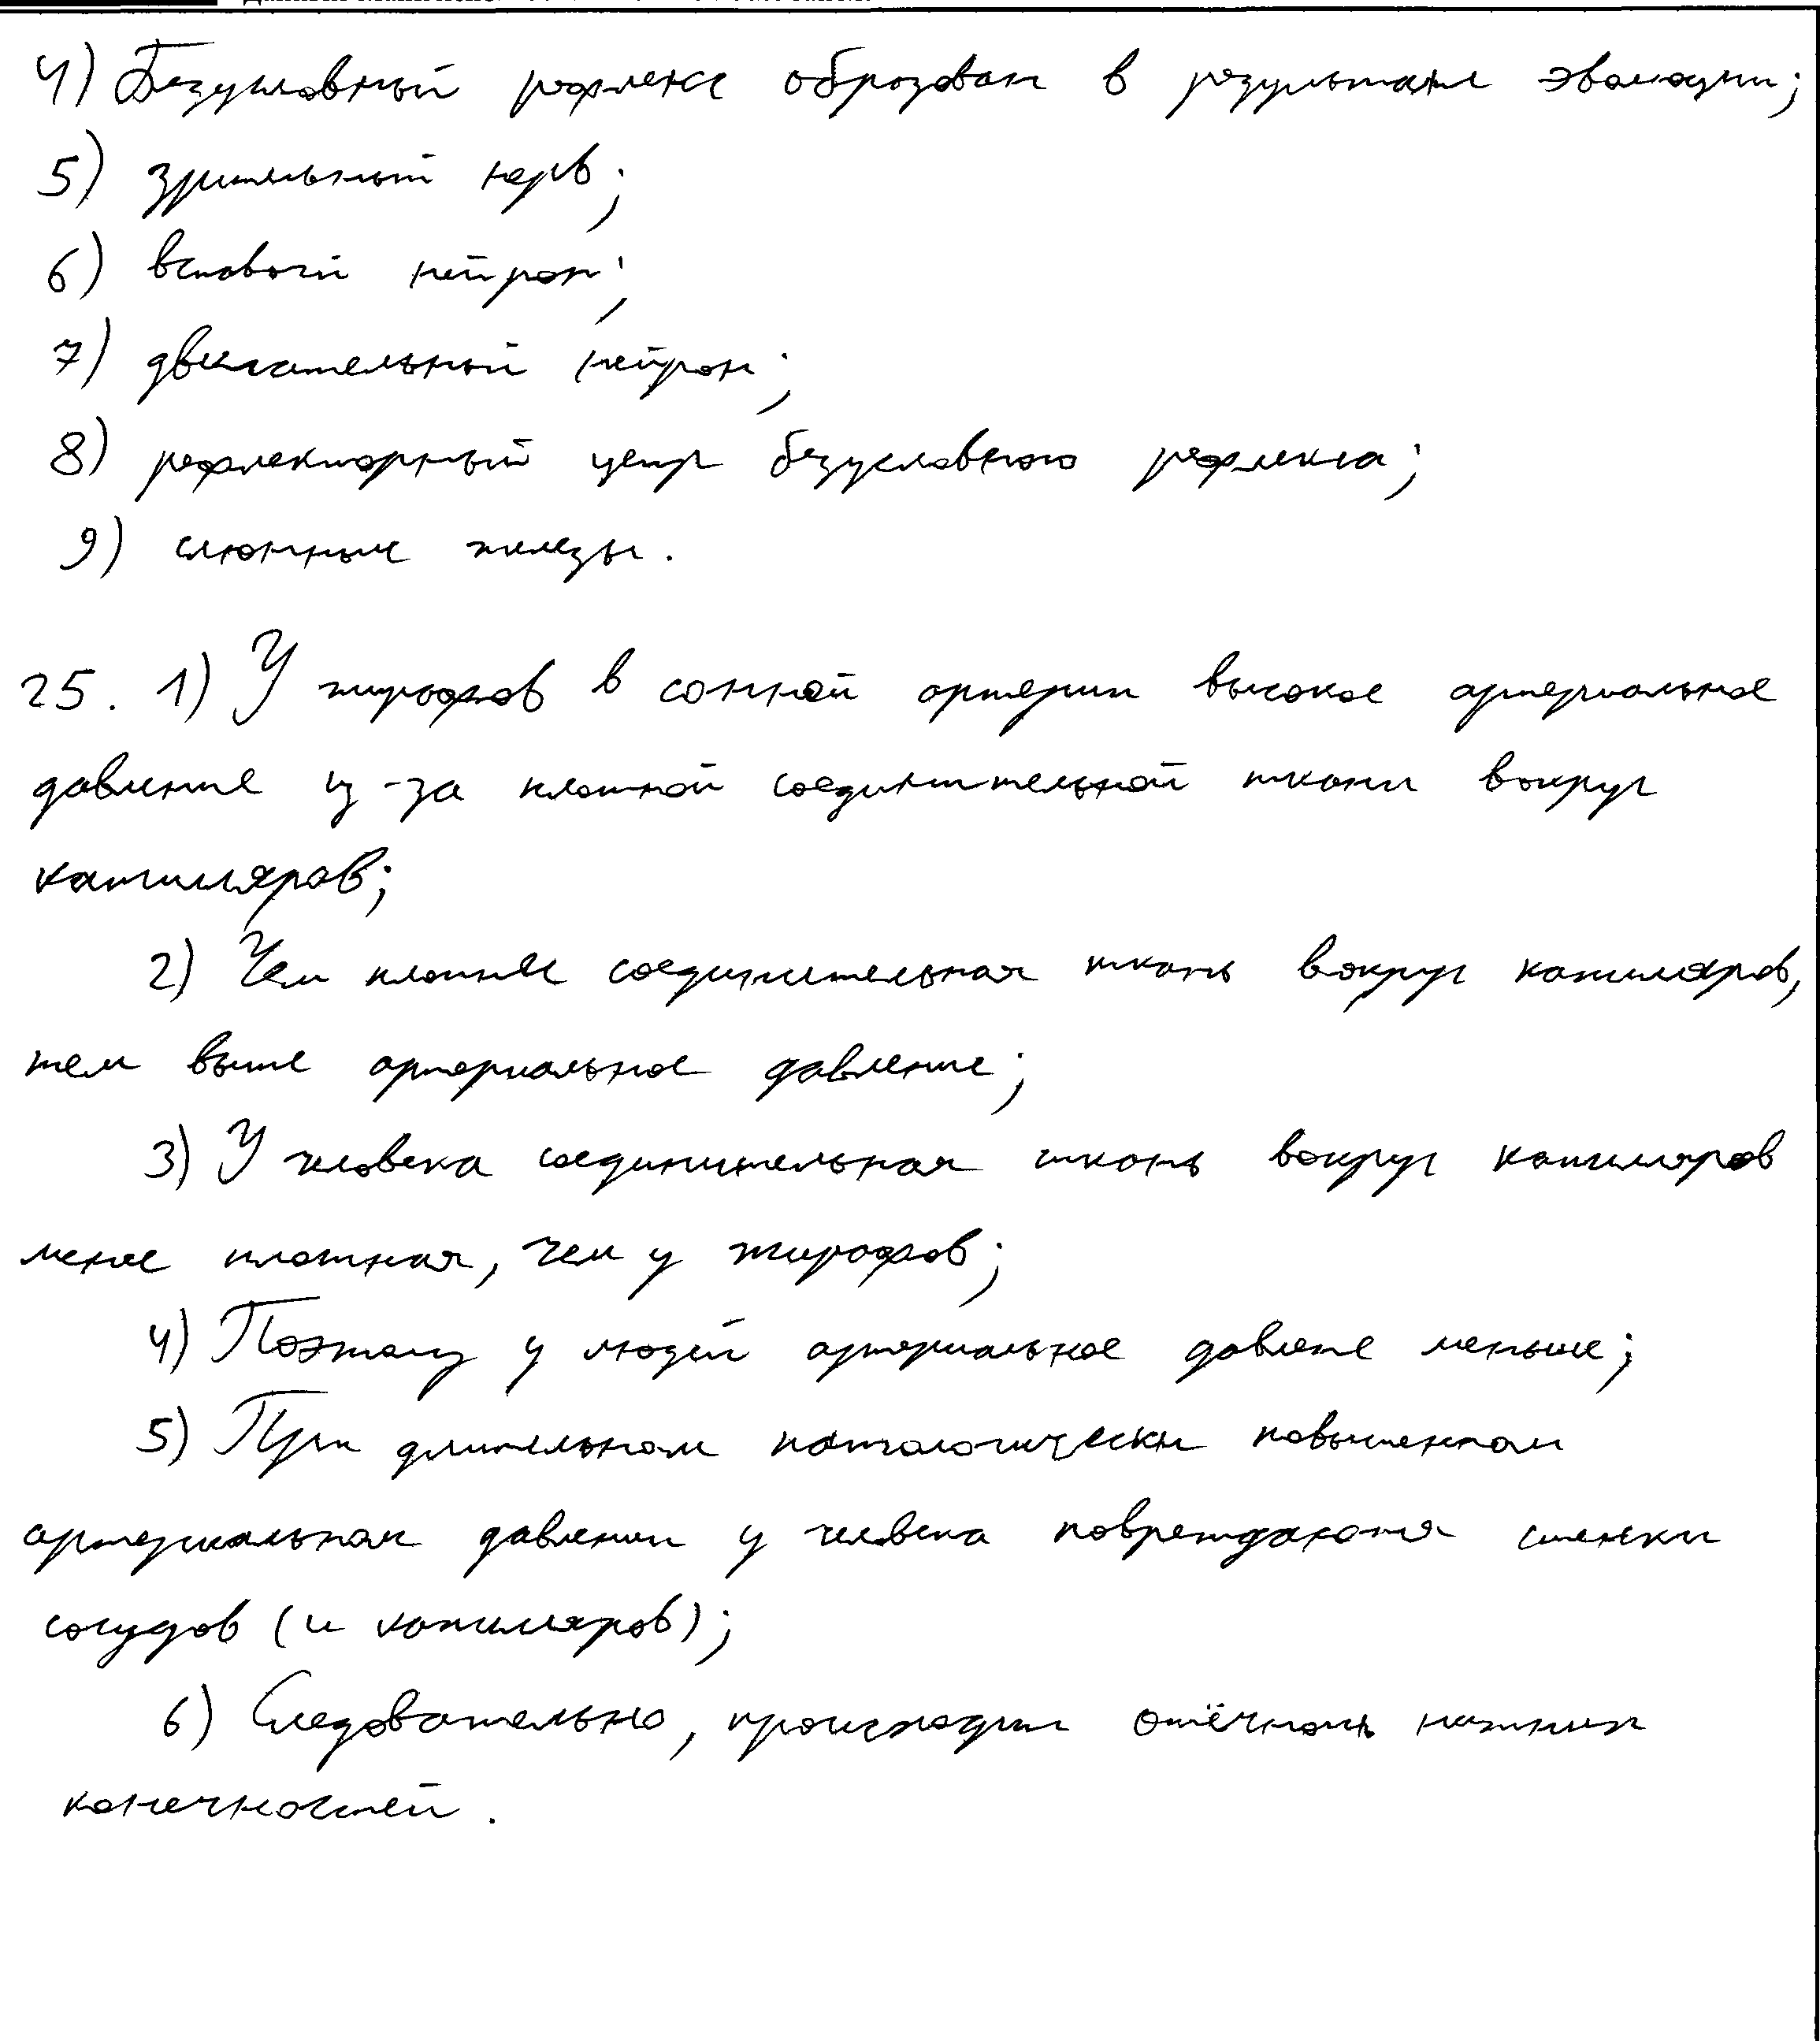 4) Безусловный рефлекс образован в результате эволюции;
5) зрительный нерв;
6) вставочный нейрон;
7) двигательный нейрон;
8) рефлекторный центр безусловного рефлекса;
9) слюнные железы.
25. 1) У жирафов в сонной артерии высокое артериальное
давление из-за плотной соединительной ткани вокруг
капилляров;
2) Чем плотнее соединительная ткань вокруг капилляров,
тем выше артериальное давление;
3) У человека соединительная ткань вокруг капилляров
менее плотная, чем у жирафов;
4) Поэтому у людей артериальное давление меньше;
5) При длительном патологически повышенном
артериальном давлении у человека повреждаются стенки
сосудов (и капилляров);
6) Следовательно, происходит отёчность нижних
конечностей.